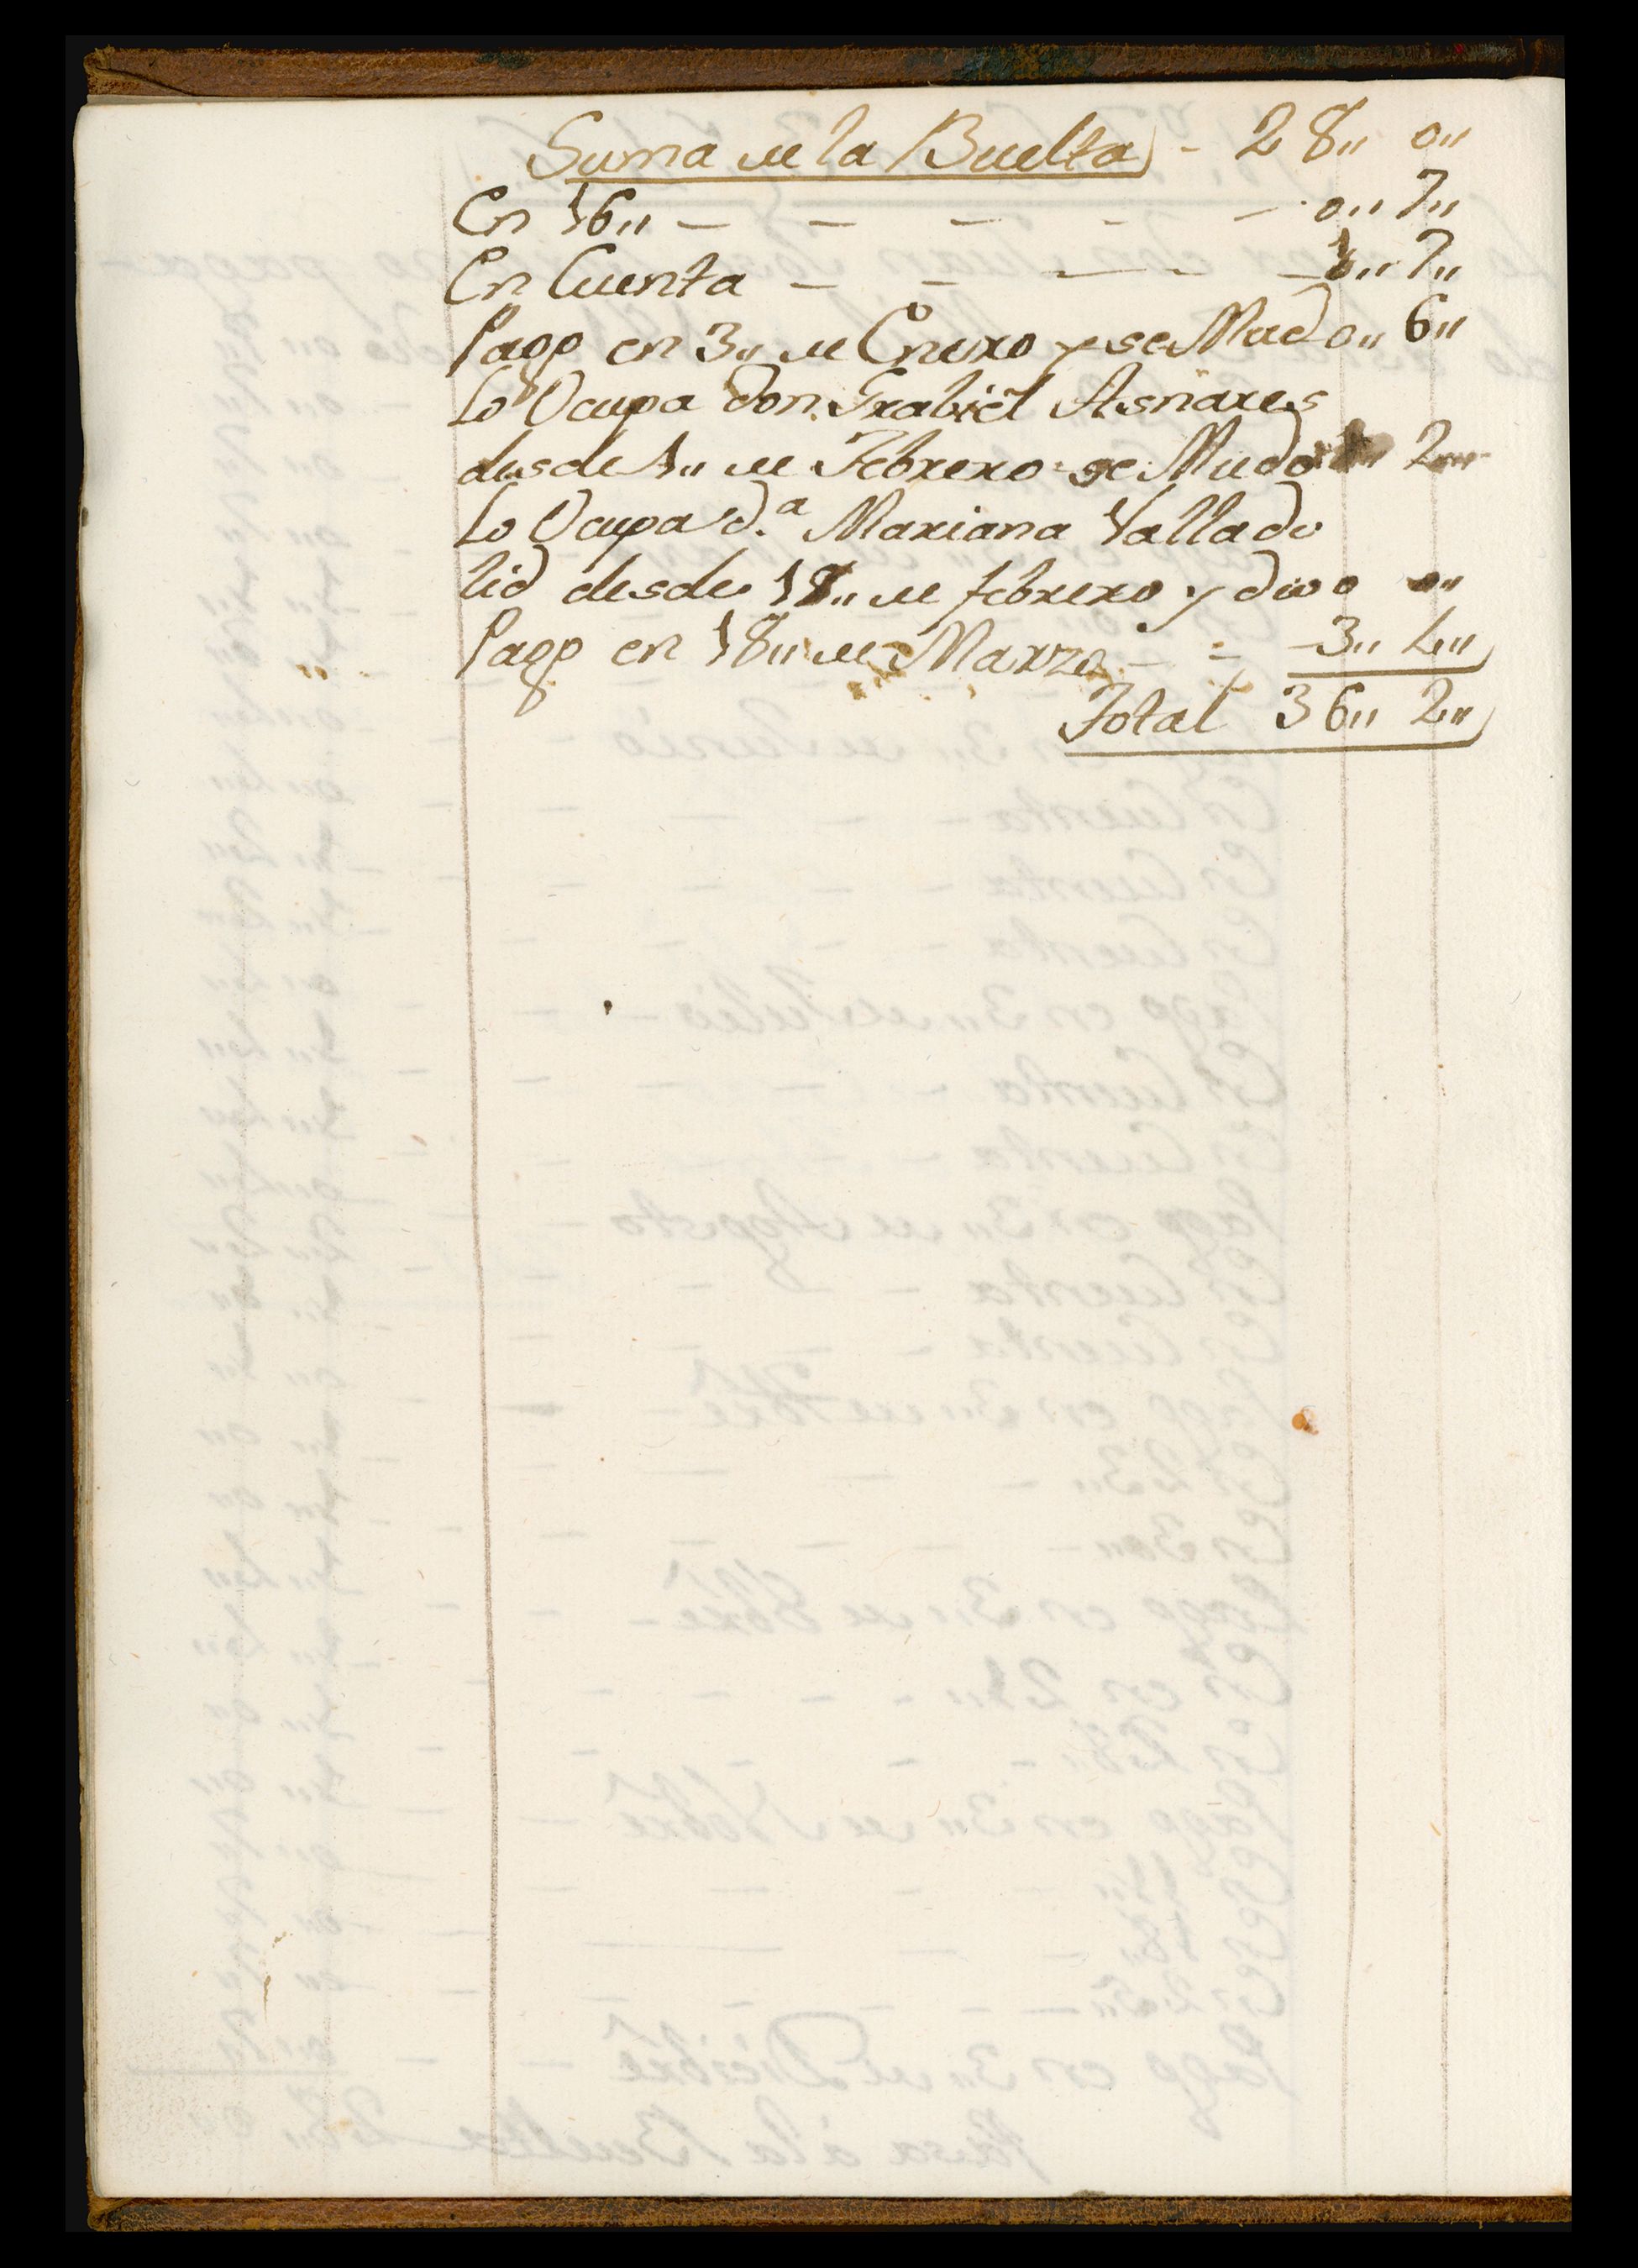 Suma de la Buelta - 28,, 0,,
En 16,, - - - - - 0,, 7,,
En Cuenta - - - - - 7,,
Pago en 3,, de Enero y se Mudo 0,, 6,,
Lo Ocupa Don Grabiel Asnares
desde 1,, de Febrero se Mudo 2,,
Lo Ocupa d.ª Mariana Vallado
lid desde 18,, de febrero y dio 0 0,,
Pago en 18,, de Marzo - - 3,, 4,,
Total 36,, 2,,